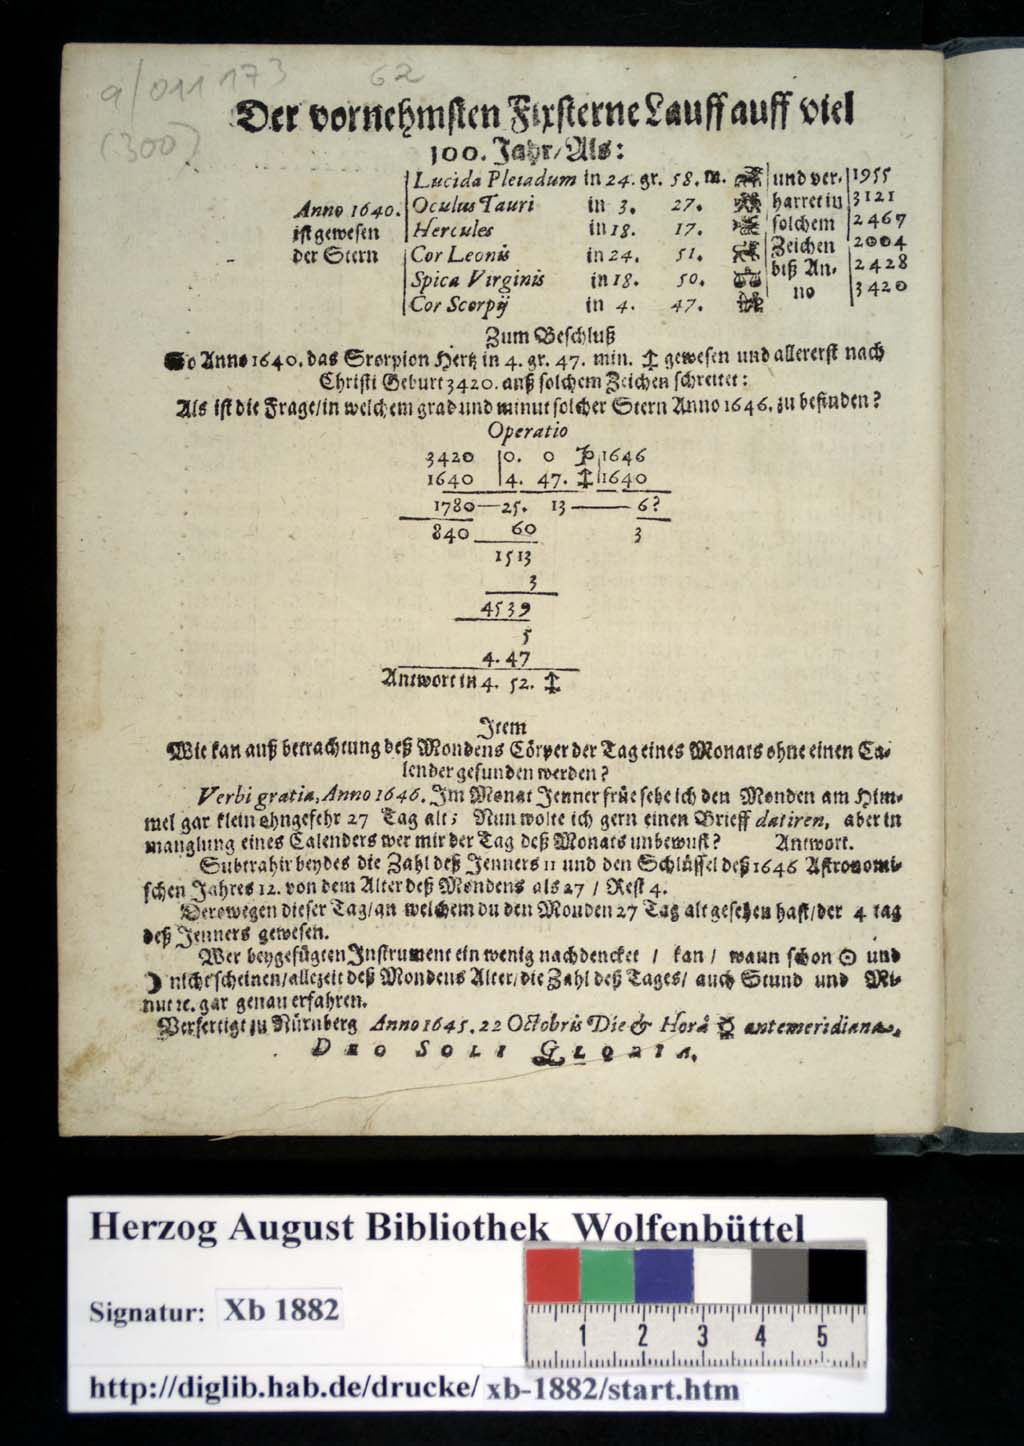 9/011 173 62
(300)
Der vornehmsten Fixsterne Lauff auff viel
100. Jahr/ Als:
Anno 1640.
ist gewesen
der Stern
Lucida Pleiadum in 24. gr. 58. m. ♉ und ver- 1955
Oculus Tauri in 3. 27. ♊ harret in 3121
Hercules in 18. 17. solchem 2467
Cor Leonis in 24. 51. ♌ Zeichen 2004
Spica Virginis in 18. 50. ♎ biß An- 2428
Cor Scorpij in 4. 47. ♐ no 3420
Zum Beschluß
So Anno 1640. das Srorpion Hertz in 4. gr. 47. min. ♐ gewesen und allererst nach
Christi Geburt 3420. auß solchem Zeichen schreitet:
Als ist die Frage/ in welchem grad und minut solcher Stern Anno 1646. zu befinden?
Operatio
3420 0. 0 ♑ 1646
1640 4. 47. ♐ 1640
1780—25. 13—6?
840 60 3
1513
3
4539
5
4. 47
Antwort in 4. 52. ♐
Item
Wie kan auß betrachtung deß Mondens Cörper der Tag eines Monats ohne einen Ca-
lender gefunden werden?
Verbi gratia, Anno 1646. Im Monat Jenner früe sehe ich den Monden am Him-
mel gar klein ohngefehr 27 Tag alt; Nun wolte ich gern einen Brieff datiren, aber in
manglung eines Calenders wer mir der Tag deß Monats unbewust? Antwort.
Subtrahir beydes die Zahl deß Jenners 11 und den Schlüssel deß 1646 Astronomi-
schen Jahres 12. von dem Alter deß Mondens als 27 / Rest 4.
Derowegen dieser Tag/ an welchem du den Monden 27 Tag alt gesehen hast/ der 4 tag
deß Jenners gewesen.
Wer beygefügten Instrument ein wenig nachdencket / kan / wann schon ☉ und
☽ nicht scheinen/ allezeit deß Mondens Alter/ die Zahl deß Tages/ auch Stund und Mi-
nut ec. gar genau erfahren.
Verfertigt zu Nürnberg Anno 1645. 22 Octobris Die & Horâ ☿ antemeridiana.
DEO SOLI GLORIA.
Herzog August Bibliothek Wolfenbüttel
Signatur: Xb 1882
1 2 3 4 5
http://diglib.hab.de/drucke/xb-1882/start.htm